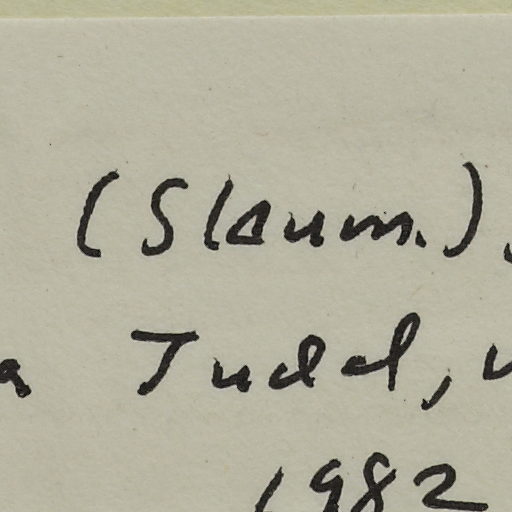 (Slaum.).
a Judd, v
1982